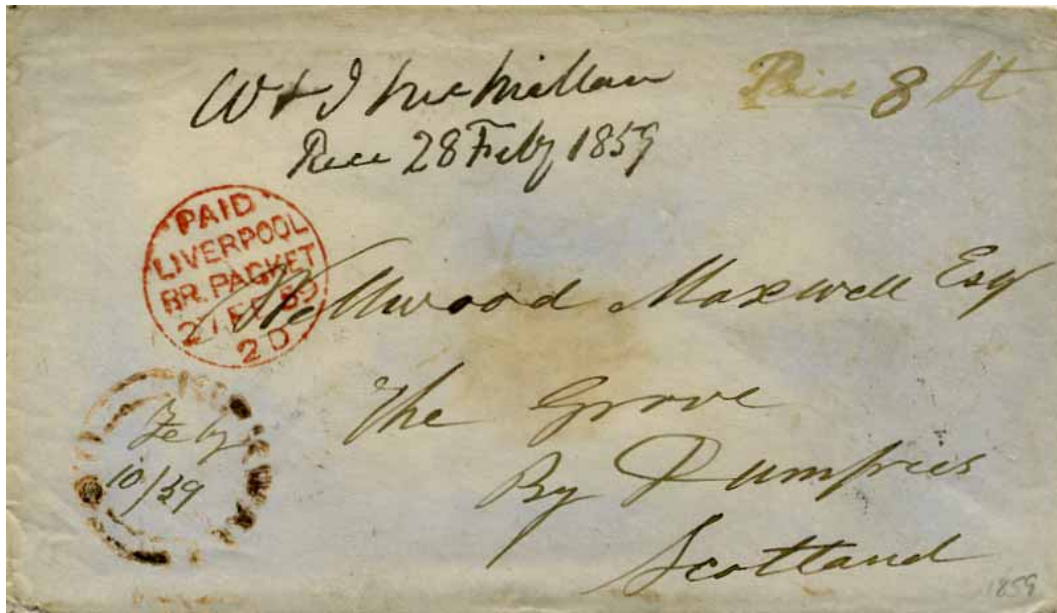 W & J McMillan
Paid 8 St
Rece 28 Feby 1859
PAID
LIVERPOOL
BR. PACKET
21 FE 59
2D
Wellwood Maxwell Esq
The Grove
By Dumfries
Scotland
Feby
10/59
1859